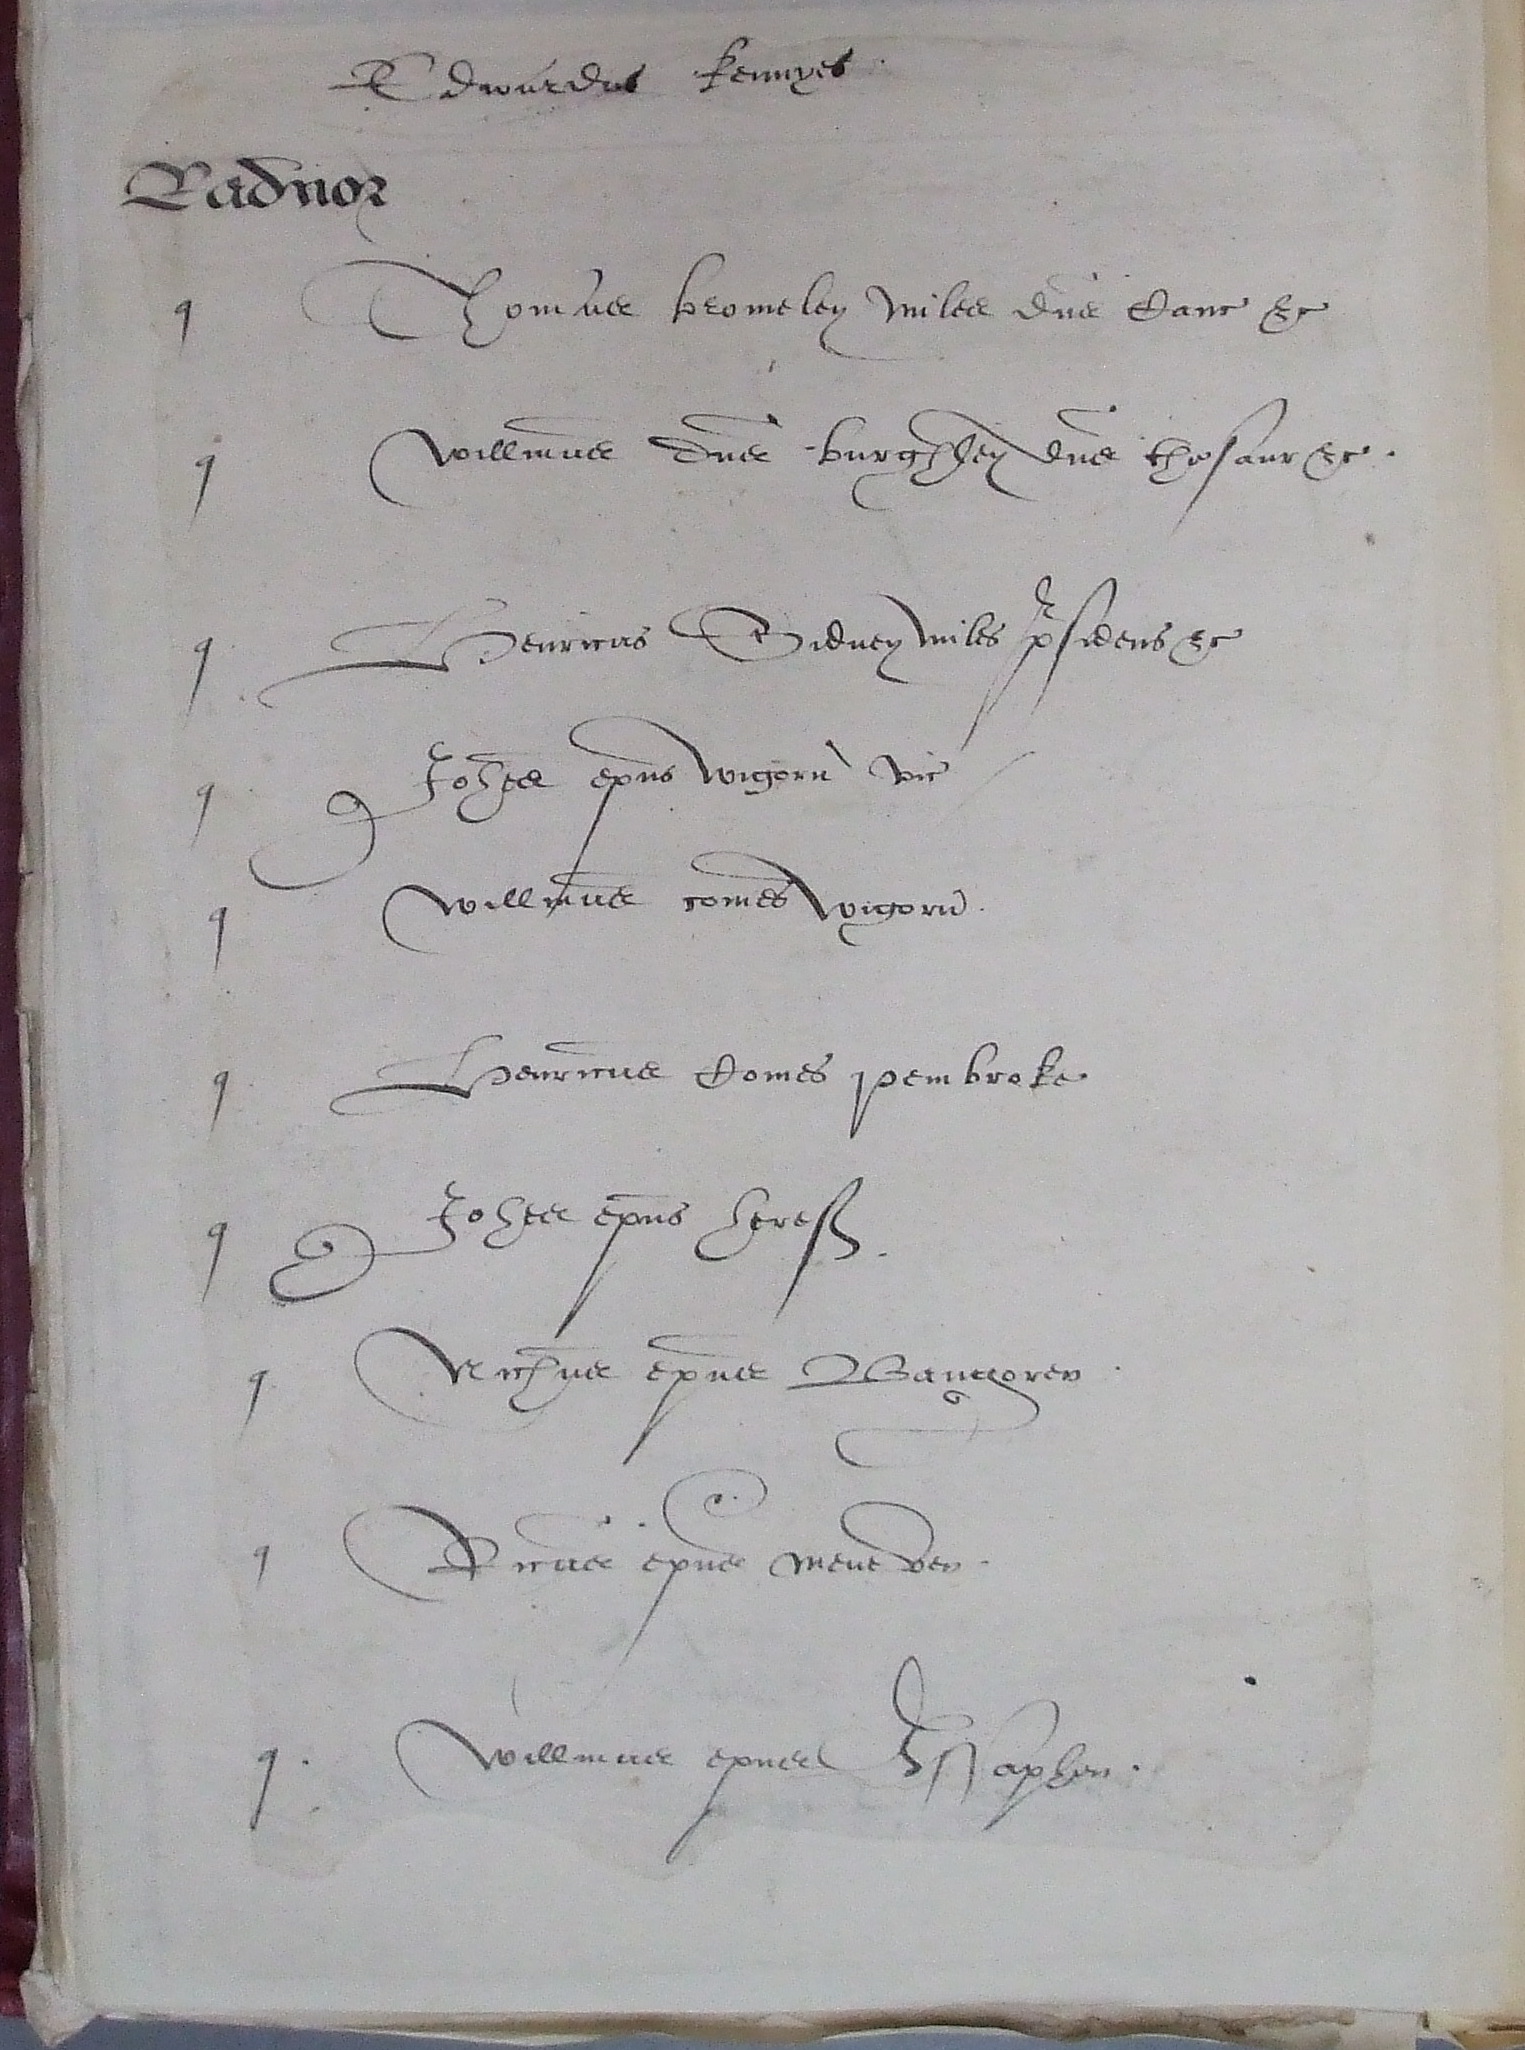 Edwardus kemyes
Radnor
q Thomas bromeley miles dns Canc &c
q willmus dns burghley dns thesaur &c
q Henricus Sidney miles p̃sidens &c
q Johes epus wigorn vic
q willmus comes wigorn
q Henricus Comes pembroke
q Johes epus heref
q Nichus epus Bangoren
q Ricus epus meneven
q willmus epus Assaphen